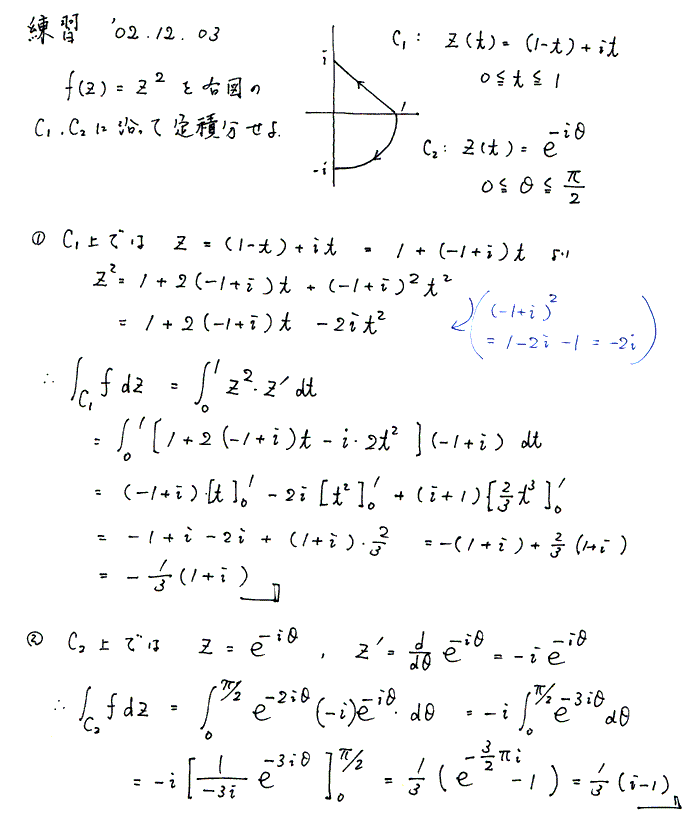 練習 '02.12.03
f(z) = z² を右図の
C₁, C₂ に沿って定積分せよ.
i
1
-i
C₁ : z(t) = (1-t) + it
0 ≦ t ≦ 1
C₂ : z(t) = e^{-iθ}
0 ≦ θ ≦ π/2
① C₁上では z = (1-t) + it = 1 + (-1+i)t より
z² = 1 + 2(-1+i)t + (-1+i)² t²
= 1 + 2(-1+i)t - 2it²
( (-1+i)²
= 1 - 2i - 1 = -2i )
∴ ∫_{C₁} f dz = ∫₀¹ z²· z' dt
= ∫₀¹ [ 1 + 2(-1+i)t - i·2t² ] (-1+i) dt
= (-1+i)·[t]₀¹ - 2i [t²]₀¹ + (i+1) [2/3 t³]₀¹
= -1 + i - 2i + (1+i)·2/3 = -(1+i) + 2/3 (1+i)
= - 1/3 (1+i)
② C₂上では z = e^{-iθ} , z' = d/dθ e^{-iθ} = -i e^{-iθ}
∴ ∫_{C₂} f dz = ∫₀^{π/2} e^{-2iθ} (-i) e^{-iθ}· dθ = -i ∫₀^{π/2} e^{-3iθ} dθ
= -i [ 1/(-3i) e^{-3iθ} ]₀^{π/2} = 1/3 ( e^{-3/2 πi} - 1 ) = 1/3 (i-1)